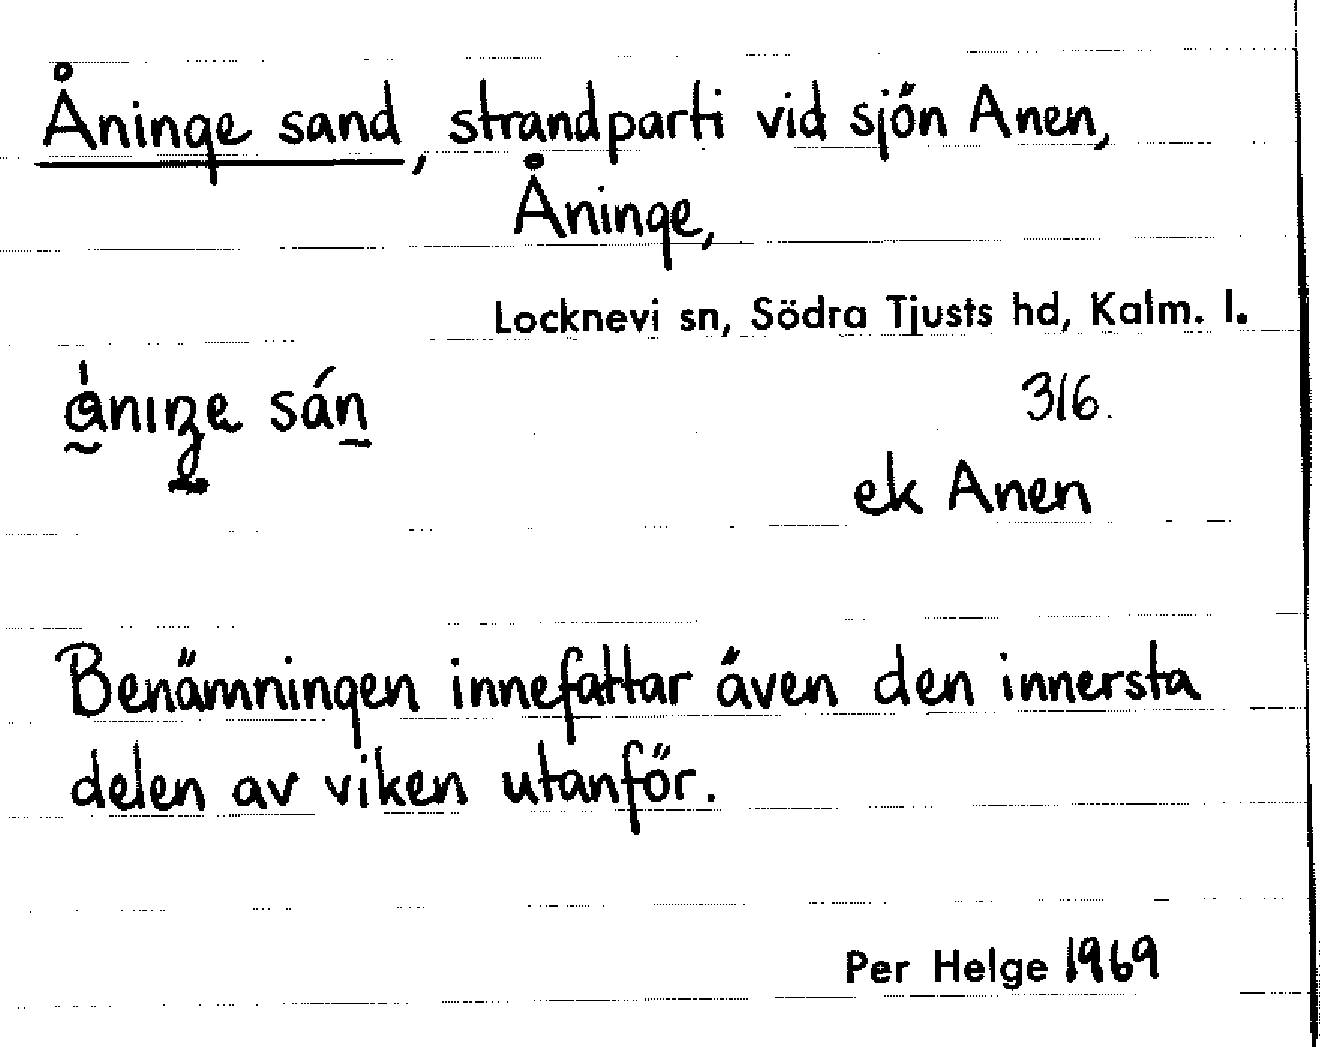 Åninge sand, strandparti vid sjön Anen,
Åninge,
Locknevi sn, Södra Tjusts hd, Kalm. l.
316.
ek Anen
Benämningen innefattar även den innersta
delen av viken utanför.
Per Helge 1969